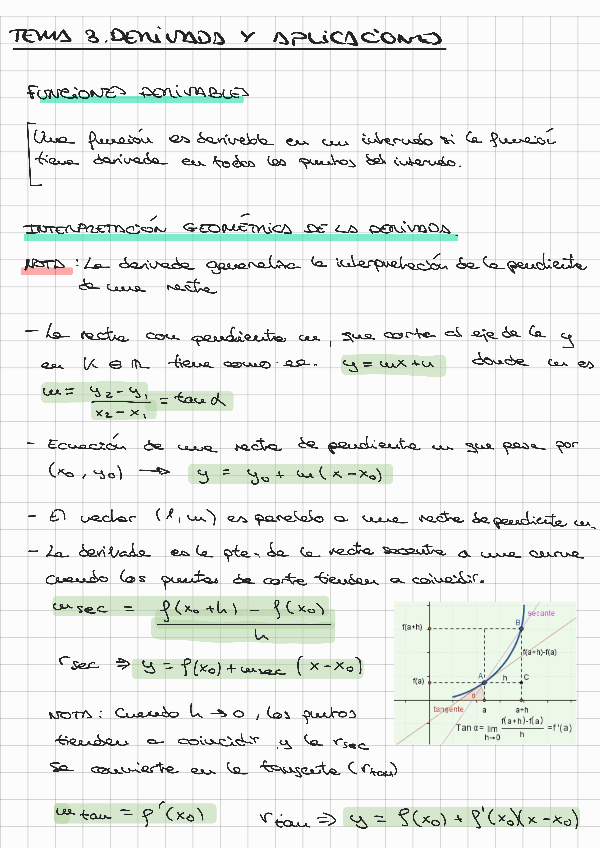 TEMA 3. DERIVADA Y APLICACIONES
FUNCIONES DERIVABLES
Una función es derivable en un intervalo si la función
tiene derivada en todos los puntos del intervalo.
INTERPRETACIÓN GEOMÉTRICA DE LA DERIVADA.
NOTA: La derivada generaliza la interpretación de la pendiente
de una recta
- La recta con pendiente m, que corta al eje de la y
en K ∈ ℝ tiene como ec. y = mx + n donde m es
m = y₂ - y₁ / x₂ - x₁ = tan α
- Ecuación de una recta de pendiente m que pasa por
(x₀, y₀) → y = y₀ + m(x - x₀)
- El vector (1, m) es paralelo a una recta de pendiente m.
- La derivada es la pte. de la recta secante a una curva
cuando los puntos de corte tienden a coincidir.
m sec = f(x₀ + h) - f(x₀) / h
r sec ⇒ y = f(x₀) + m sec (x - x₀)
secante
B
f(a+h)
f(a+h)-f(a)
f(a)
A
h
C
α
tangente
a
a+h
Tan α = lim h→0 f(a+h)-f(a) / h = f'(a)
NOTA: Cuando h → 0, los puntos
tienden a coincidir y la r sec
se convierte en la tangente (r tan)
m tan = f'(x₀) r tan ⇒ y = f(x₀) + f'(x₀)(x - x₀)